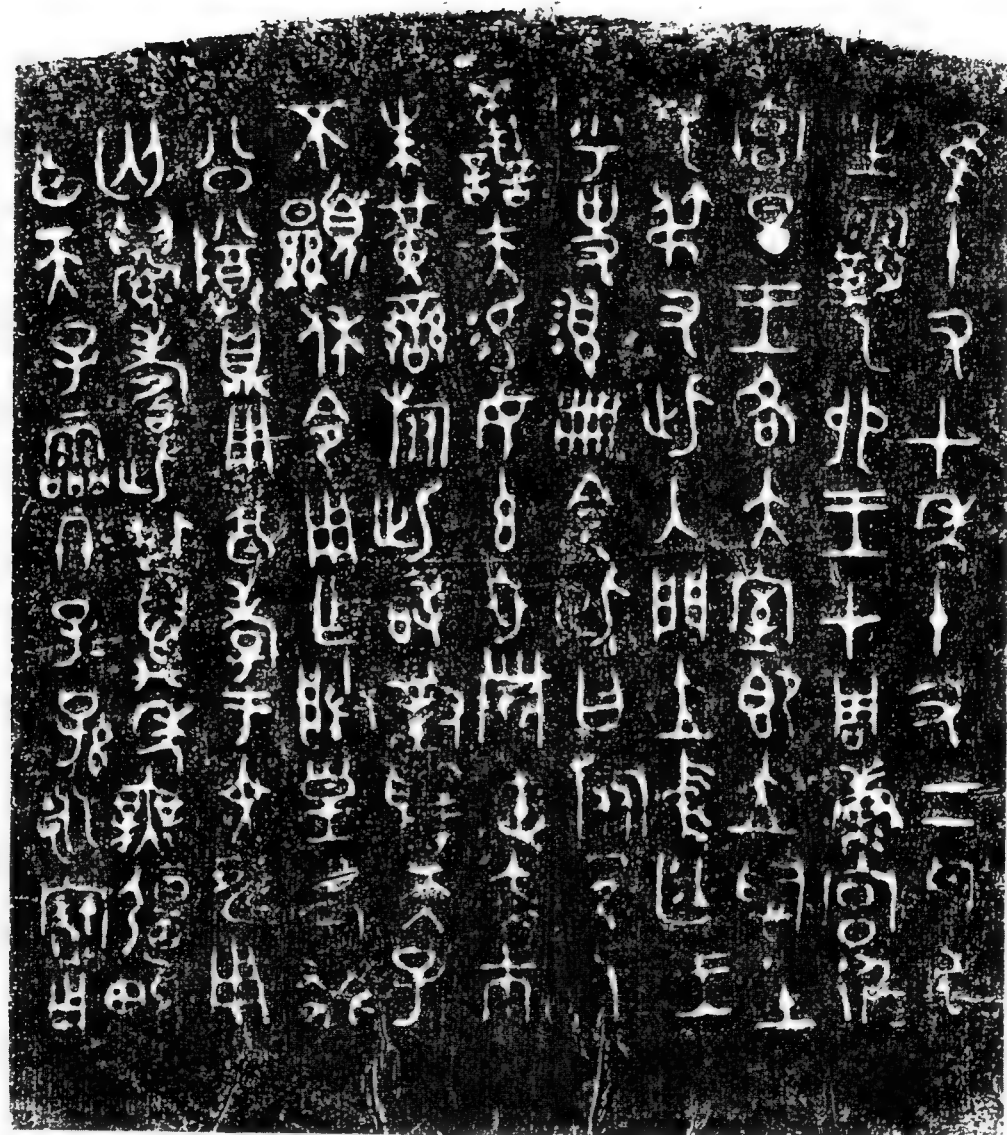 隹十又七年十又二月既
生霸乙卯王才周康宮𢓊
宮旦王各大室即立𤔲土
毛弔又此入門立中廷王
乎史翏冊令此曰旅邑人
善夫易女玄衣黹屯赤市
朱黃䜌旂此敢對揚天子
不顯休令用乍朕皇考癸
公尊鼎用享孝于文申用
匄眉壽此其萬年無彊畯
臣天子霝冬子子孫孫永寶用